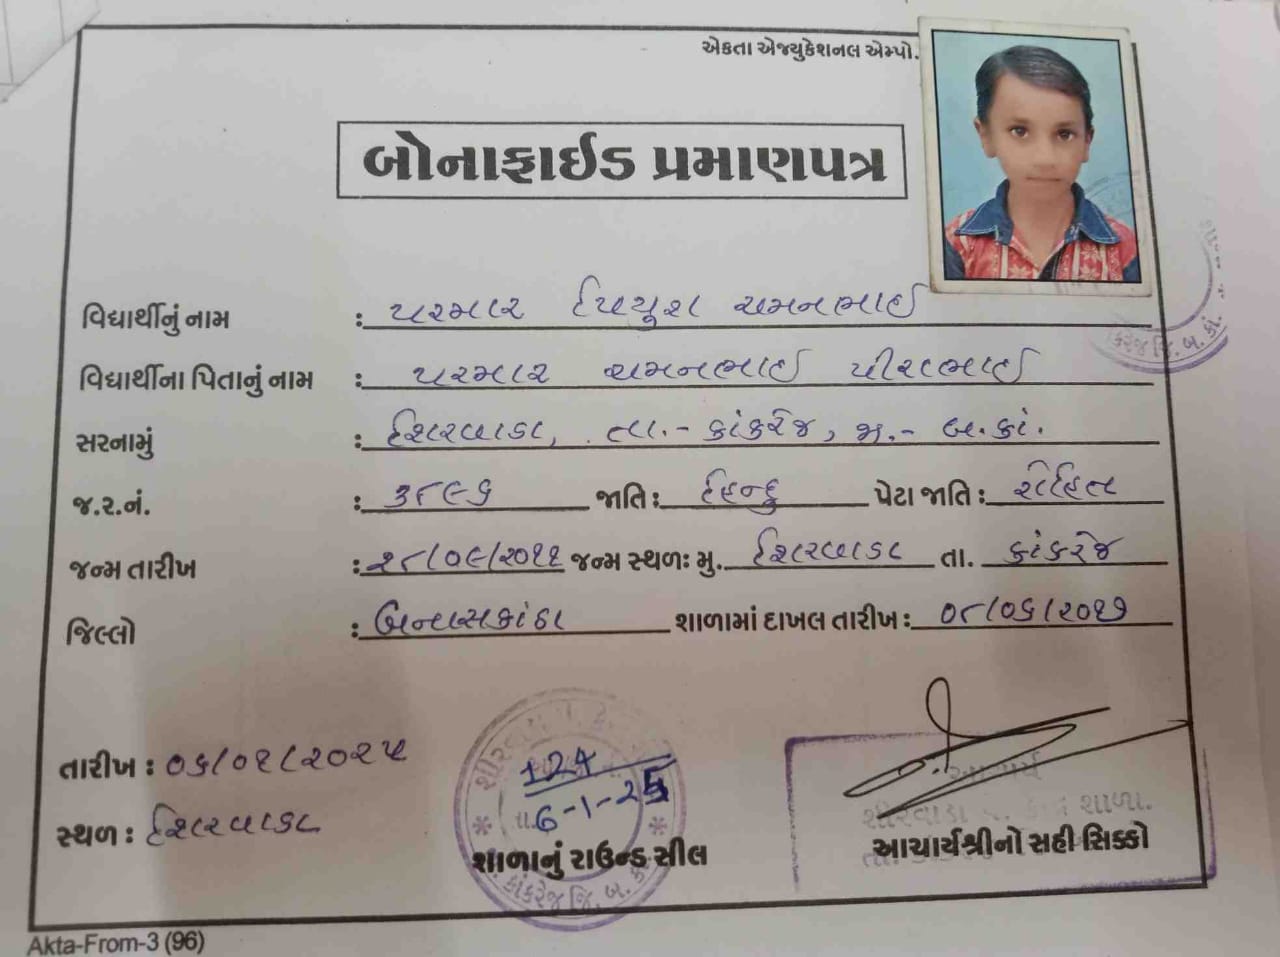 એકતા એજ્યુકેશનલ એમ્પો.
બોનાફાઈડ પ્રમાણપત્ર
વિદ્યાર્થીનું નામ : પરમાર દિપયૂશ ચમનભાઈ
વિદ્યાર્થીના પિતાનું નામ : પરમાર ચમનભાઈ પીરાભાઈ
સરનામું : શિરવાડા, તા.- કાંકરેજ, જી.- બ.કાં.
જ.ર.નં. : ૩૮૯૬ જાતિ : હિન્દુ પેટા જાતિ : રોહિત
જન્મ તારીખ : ૨૮/૦૯/૨૦૧૧ જન્મ સ્થળઃ મુ. શિરવાડા તા. કાંકરેજ
જિલ્લો : બનાસકાંઠા શાળામાં દાખલ તારીખ : ૦૮/૦૬/૨૦૧૭
તારીખ : ૦૬/૦૧/૨૦૨૫
સ્થળ : શિરવાડા
124
તા. 6-1-25
શાળાનું રાઉન્ડ સીલ
કાંકરેજ જિ. બ. કાં.
આચાર્ય
શીરવાડા શાળા.
આચાર્યશ્રીનો સહી સિક્કો
Akta-From-3 (96)